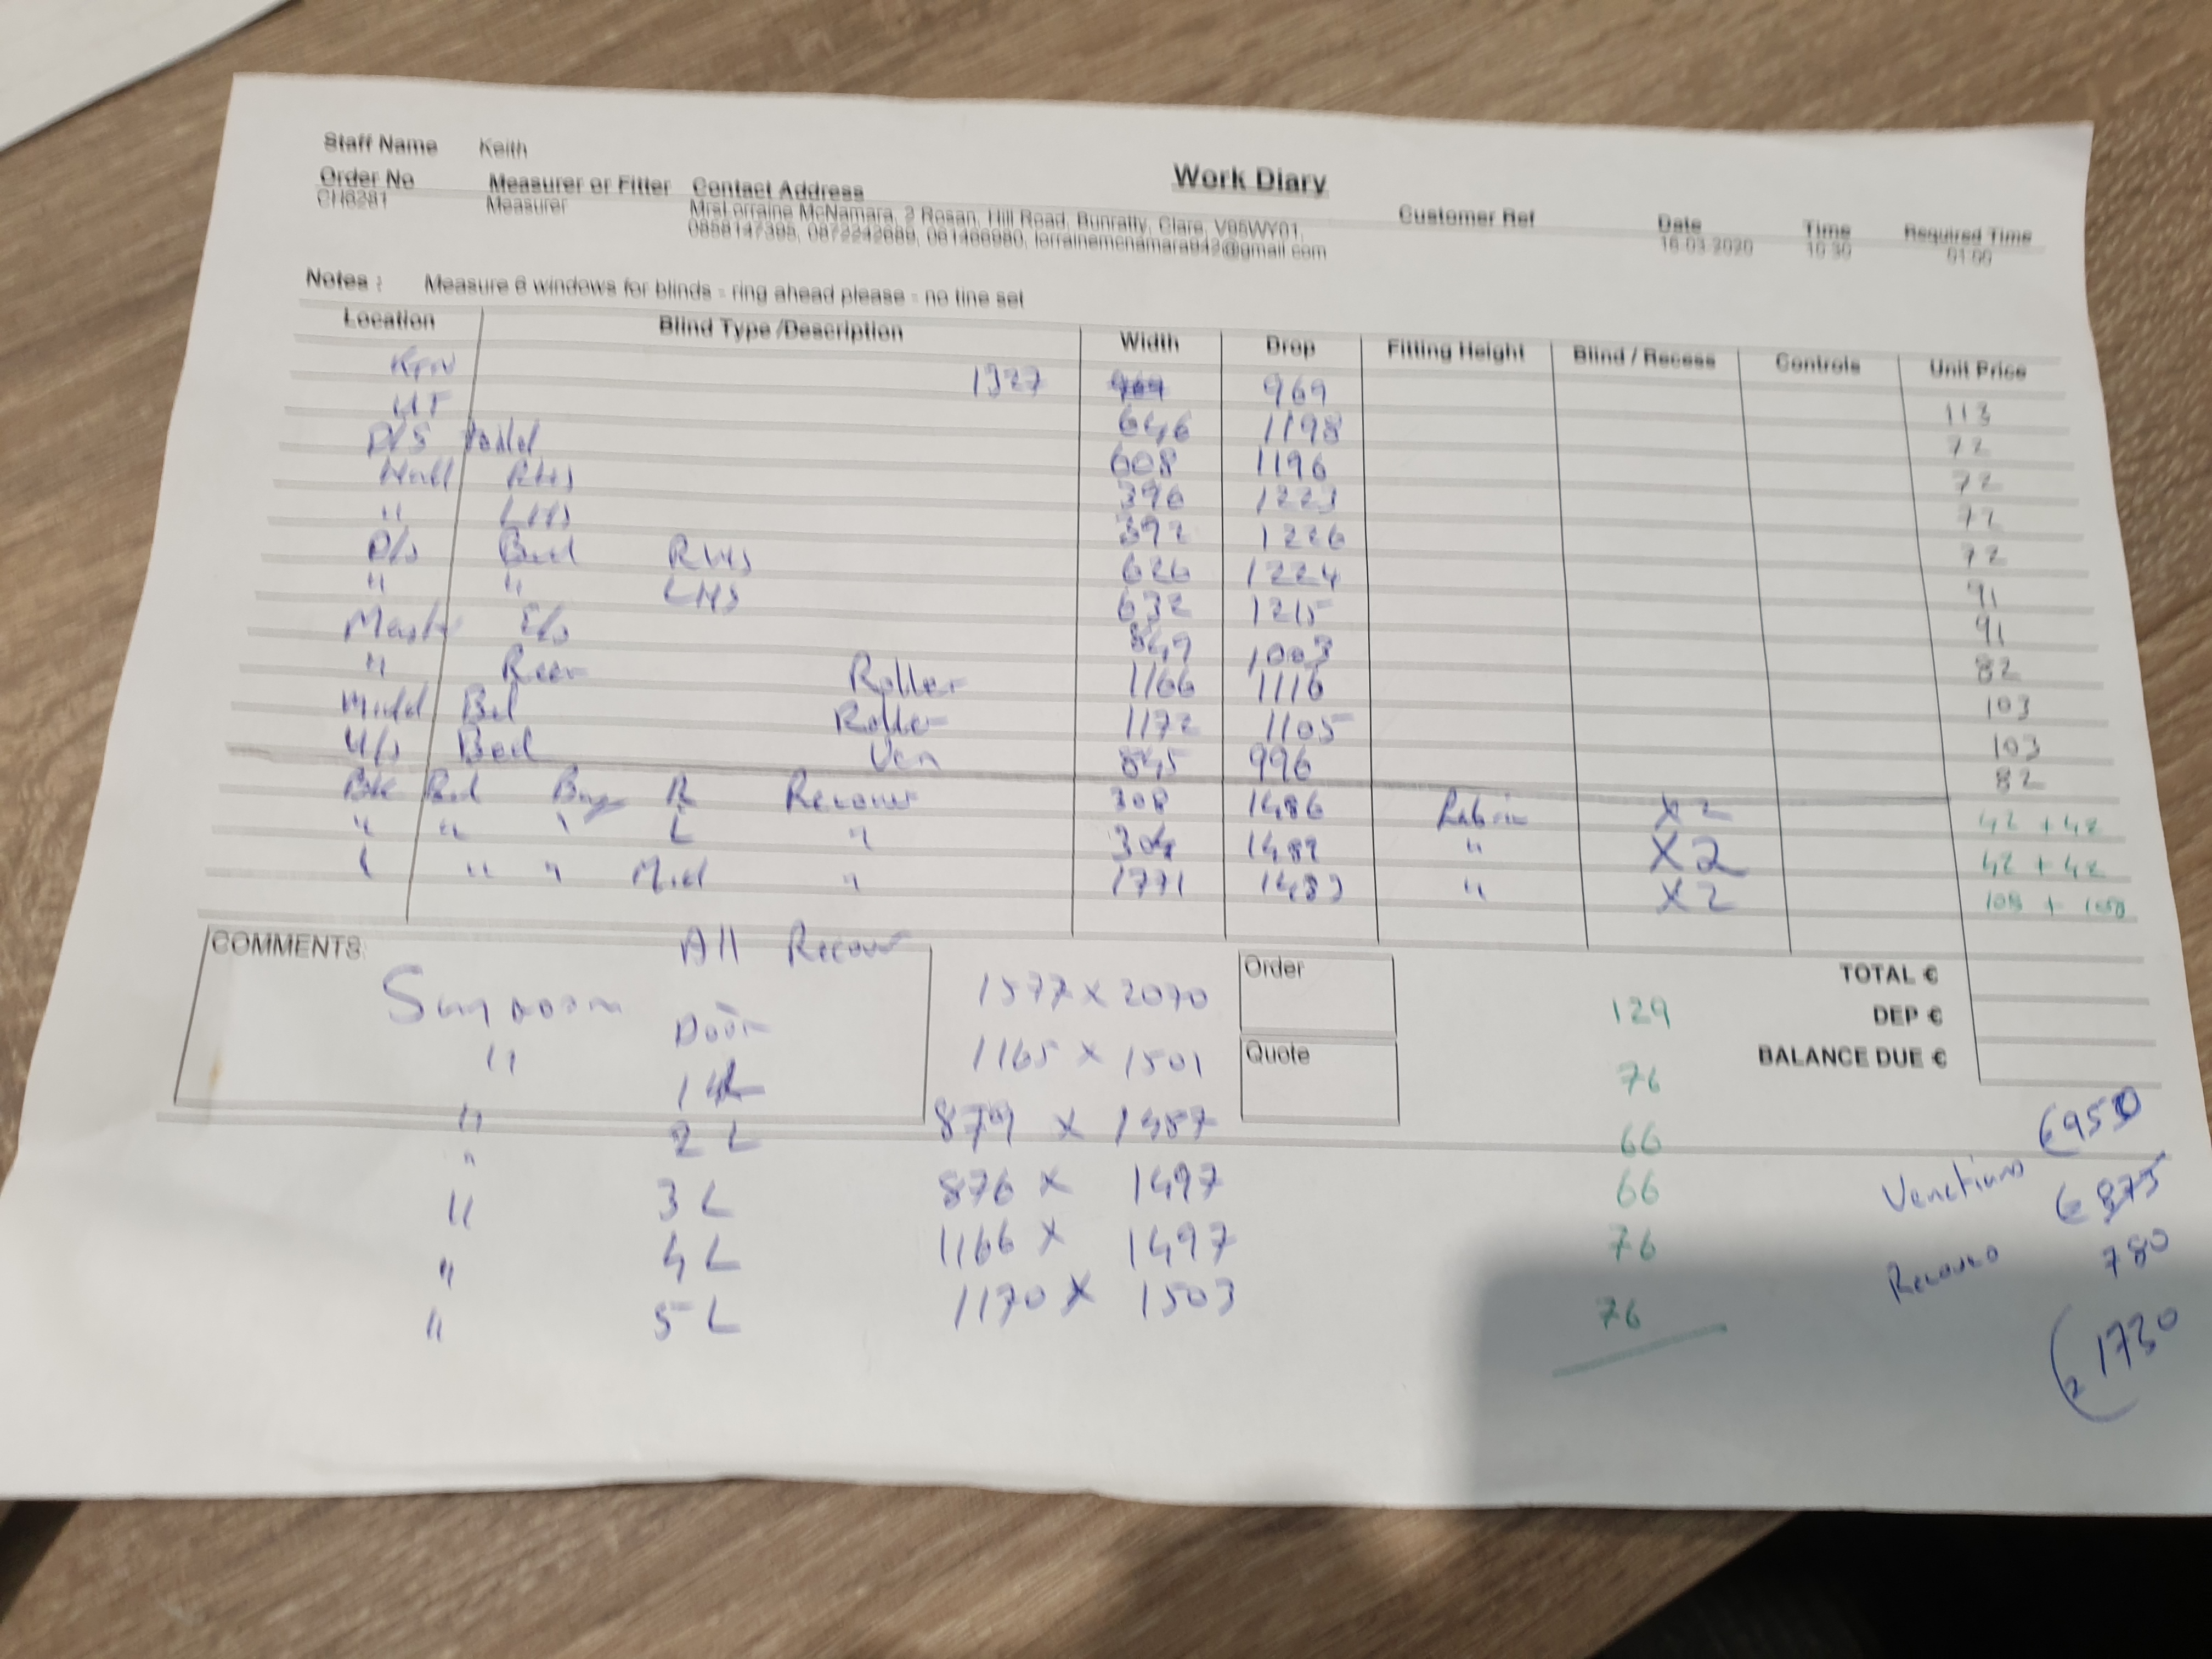 Staff Name Keith
Work Diary
Order No Measurer or Fitter Contact Address Customer Ref Date Time Required Time
CH6281 Measurer Mrs Lorraine McNamara, 2 Rosan, Hill Road, Bunratty, Clare, V95WY01, 16-03-2020 10:30 01:00
0858147395, 0872242689, 061466980, lorrainemcnamara942@gmail.com
Notes : Measure 6 windows for blinds - ring ahead please - no tine set
Location Blind Type /Description Width Drop Fitting Height Blind / Recess Controls Unit Price
1327 969 969 113
UT 646 1198 72
D/S 608 1196 72
Hall RHS 396 1223 72
" LHS 392 1226 72
D/s Bed RHS 626 1224 91
" " LHS 632 1215 91
Master 849 1003 82
" Rear Roller 1166 1116 103
Midd Bed Roller 1172 1105 103
U/s Bed Ven 845 996 82
Bed Bay R Recover 308 1486 X 2 42 + 42
" " " L " 304 1489 " X 2 42 + 42
" " " Mid " 1771 1483 " X 2 108 + 108
COMMENTS: All Recover
Sunroom Door 1577 x 2070 129
" 1 L 1165 x 1501 76
" 2 L 879 x 1487 66
" 3 L 876 x 1497 66
" 4 L 1166 x 1497 76
" 5 L 1170 x 1503 76
Order
Quote
TOTAL €
DEP €
BALANCE DUE €
€950
Venetians € 875
Recovers 780
1730